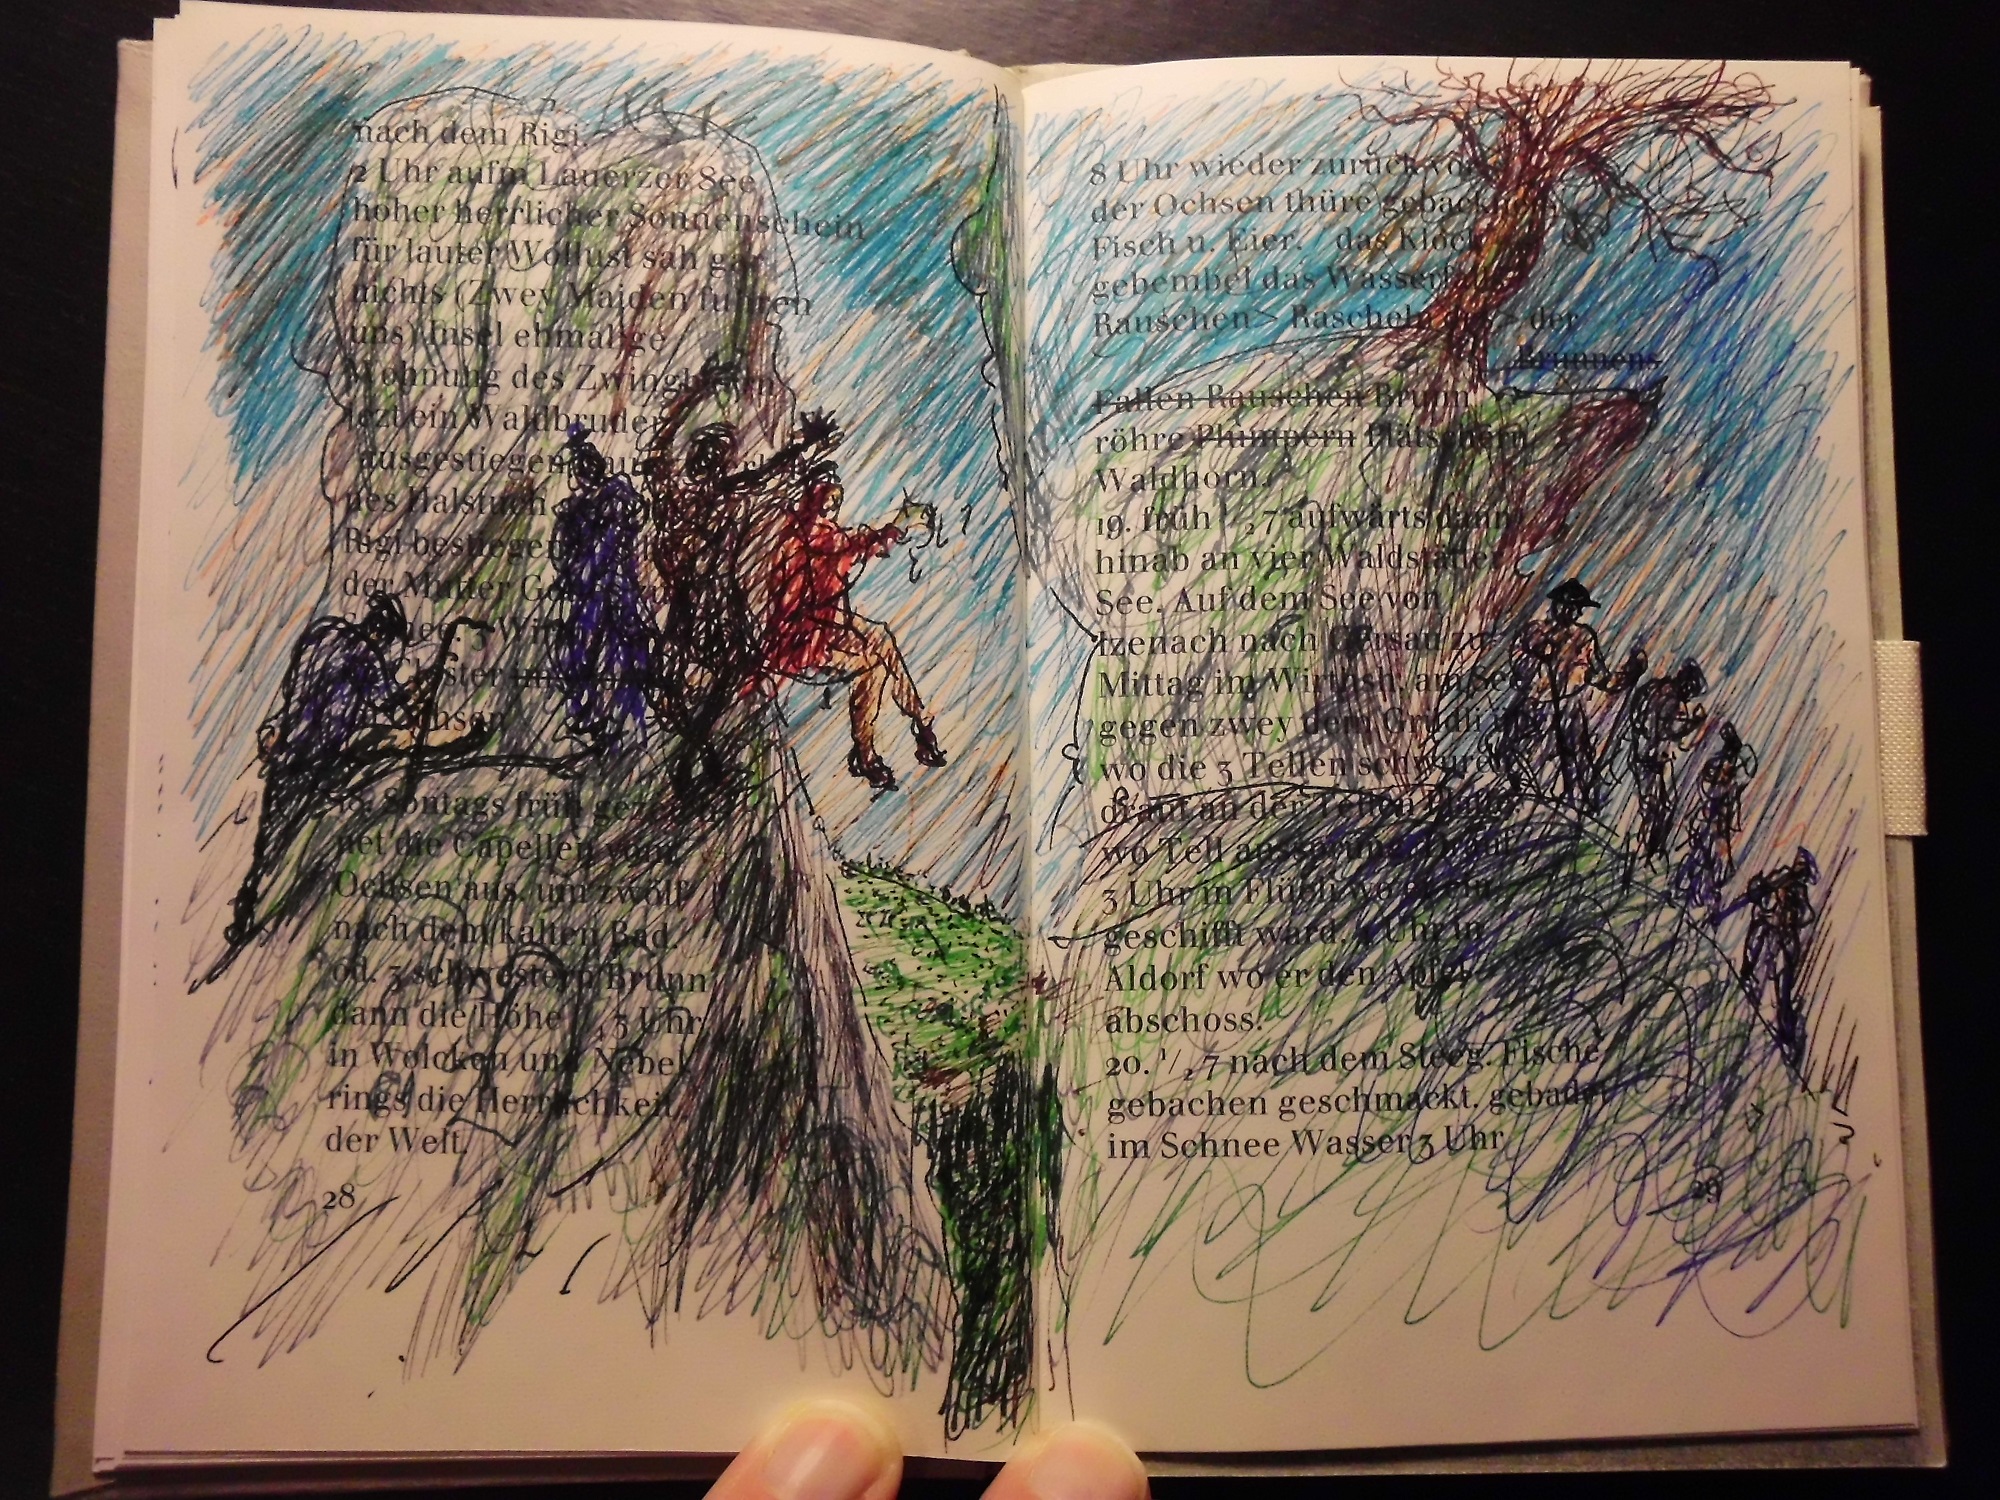 nach dem Rigi.
2 Uhr aufm Lauerzer See
hoher herrlicher Sonnenschein
für lauter Wollust sah gar
nichts (Zwey Maiden fuhren
uns) Insel ehmalige
Wohnung des Zwingherrn
iezt ein Waldbruder
ausgestiegen
nes Halstuch
Rigi bestiegen
der Mutter
Wir
Closter
Ochsen
18. Sontags früh gez
net die Capellen vom
Ochsen aus. um zwölf
nach dem kalten Bad.
od. 3 schwestern Brunn
dann die Höhe 1/4 3 Uhr
in Wolcken und Nebel
rings die Herrlichkeit
der Welt.
28
8 Uhr wieder zurück vor
der Ochsen thüre gebackne
Fisch u. Eier. das Klock
gebembel das Wasserfalls
Rauschen> Rascheln der
Brunnens
Fallen Rauschen Brunn
röhre Plumpern Plätschern
Waldhorn.
19. früh 1/2 7 aufwärts dann
hinab an vier Waldstädter
See. Auf dem See von
Izenach nach Gersau zu
Mittag im Wirthsh. am See
gegen zwey dem Grüdli
wo die 3 Tellen schwuren
drauf an der Tellen Platte
wo Tell aussprang. Drauf
3 Uhr in Flüeli wo er ein
geschifft ward. 4 Uhr in
Aldorf wo er den Apfel
abschoss.
20. 1/2 7 nach dem Steeg. Fische
gebachen geschmackt. gebadet
im Schnee Wasser 3 Uhr
29